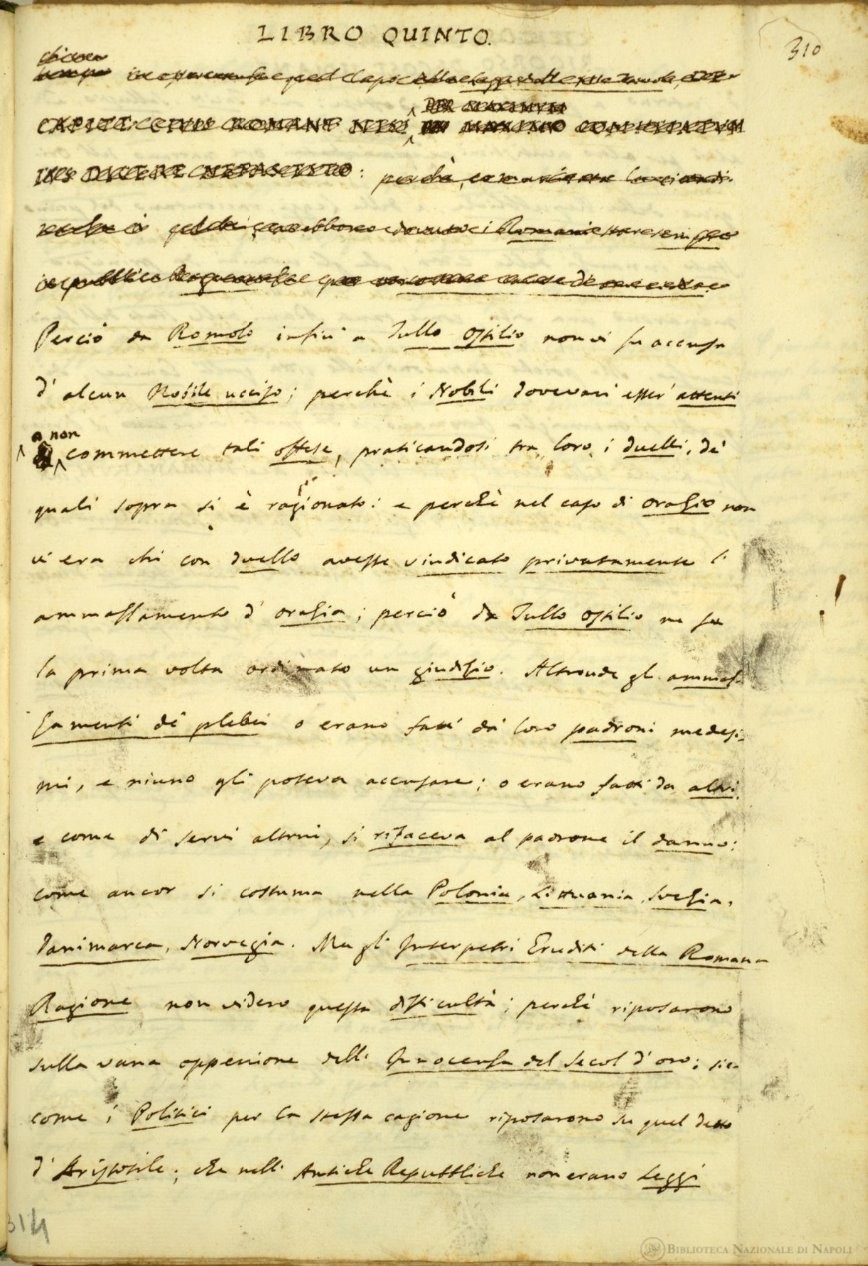 LIBRO QUINTO.
310
PER MAXIMVM
CAPITE CIVIS ROMANI NISI PER MAXIMVM COMITIATVM
IVS DICERE NEFAS ESTO: perchè,
i Romani
Perciò da Romolo infin' a Tullo Ostilio non vi fu accusa
d' alcun Nobile ucciso; perchè i Nobili dovevan' esser' attenti
a non
commettere tali offese, praticandosi tra loro i duelli, de'
quali sopra si è ragionato: e perchè nel caso di Orazio non
v' era chi con duello avesse vindicato privatamente l'
ammazzamento d' Orazia; perciò da Tullo Ostilio ne fu
la prima volta ordinato un giudizio. Altronde gli ammaz-
zamenti de' plebei o erano fatti da' loro padroni medesi-
mi, e niuno gli poteva accusare; o erano fatti da altri,
e come di servi altrui, si rifaceva al padrone il danno:
come ancor si costuma nella Polonia, Littuania, Svezia,
Danimarca, Norvegia. Ma gl' Interpetri Eruditi della Romana
Ragione non videro questa difficultà; perchè riposarono
sulla vana oppenione dell' Innocenza del Secol d' oro; sic-
come i Politici per la stessa cagione riposarono su quel detto
d' Aristotile; che nell' Antiche Repubbliche non erano Leggi
314
BIBLIOTECA NAZIONALE DI NAPOLI